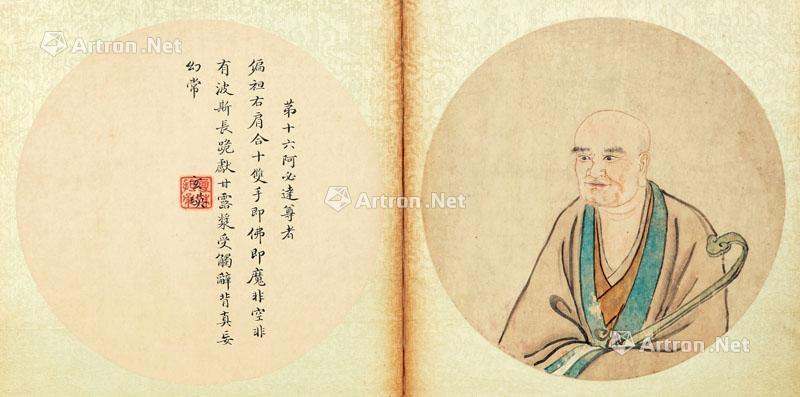 第十六阿必達尊者
偏袒右肩合十雙手即佛即魔非空非
有波斯長跪獻甘露漿受觸辭背真妄
幻常
Artron.Net
Artron.Net
Artron.Net
Artron.Net
Artron.Net